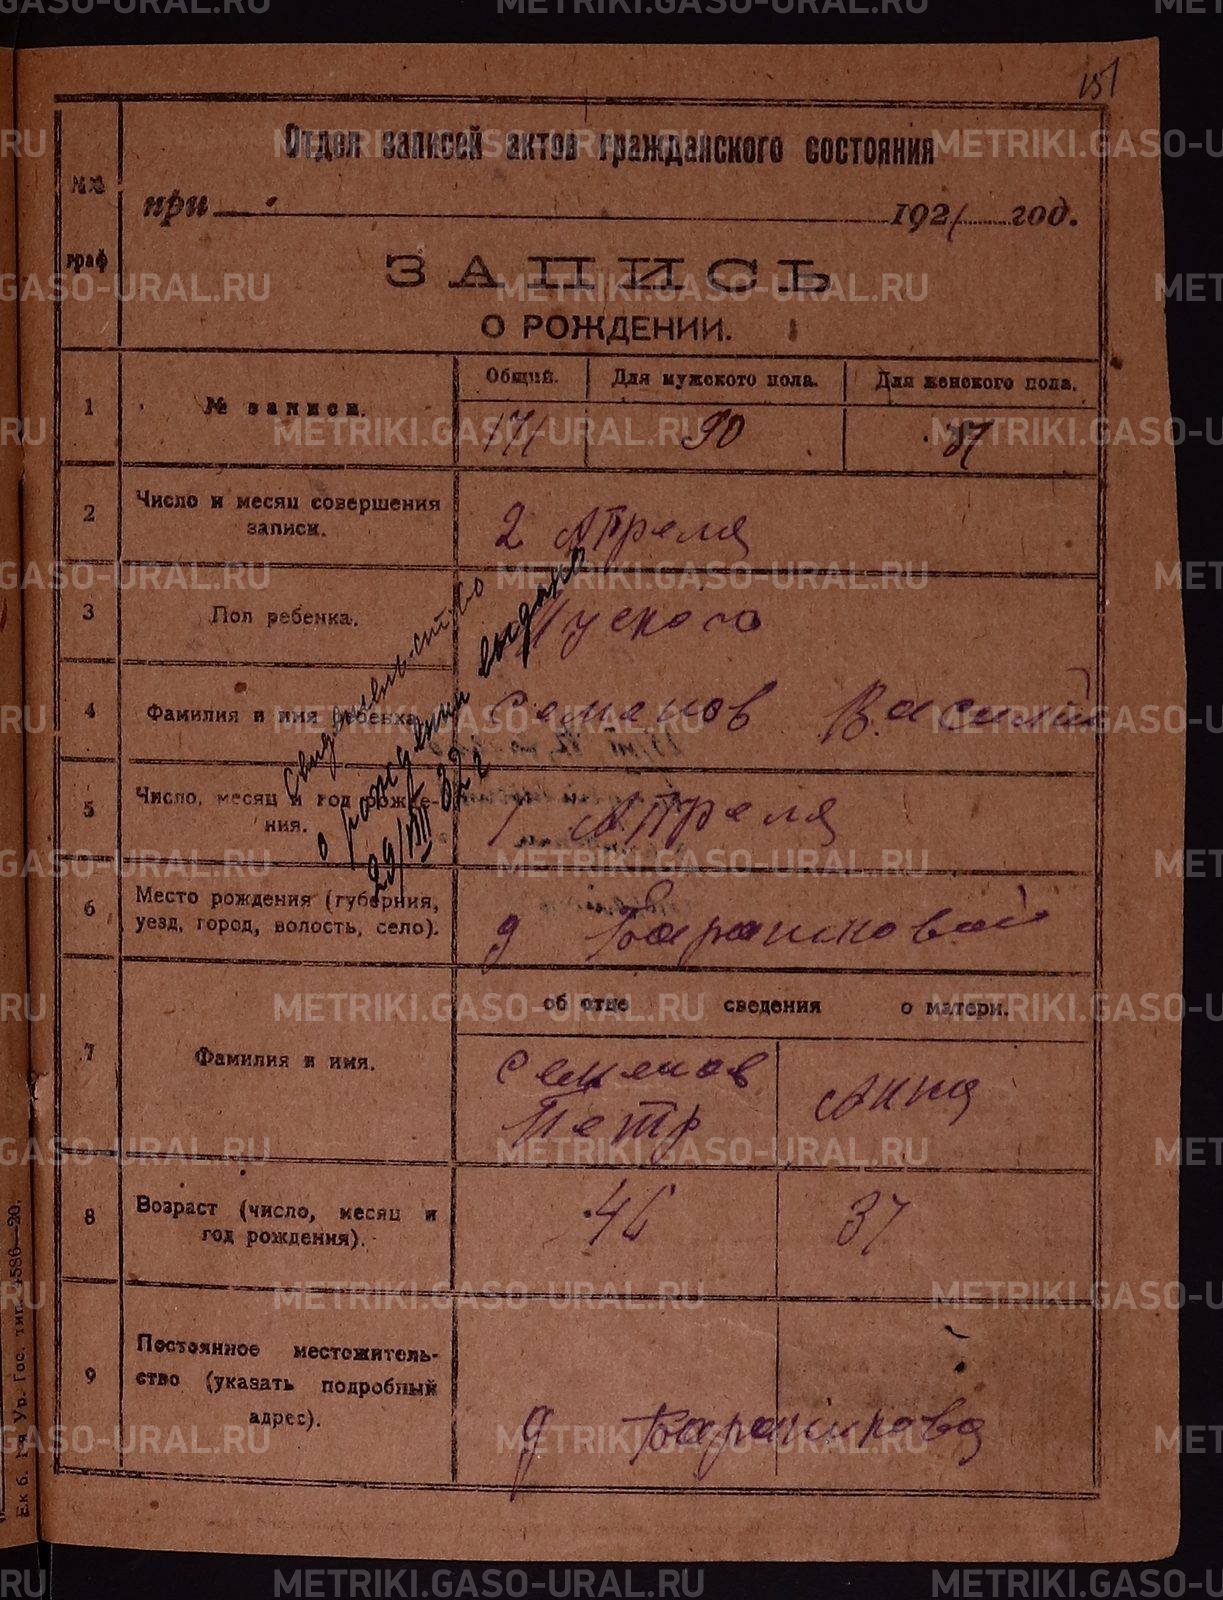 151
Отдел записей актов гражданского состояния
№№ граф
при 1921 год.
ЗАПИСЬ
О РОЖДЕНИИ.
1 № записи. Общий. Для мужского пола. Для женского пола.
171 90 81
2 Число и месяц совершения
записи.
2 Апреля
3 Пол ребенка. Муского
4 Фамилия и имя ребенка Семенов Василий
Свидетельство
о рождении выдано
29/VIII 32 г
5 Число, месяц и год рожде-
ния.
1 Апреля
6 Место рождения (губерния,
уезд, город, волость, село).
д Барашковой
об отце сведения о матери.
7 Фамилия и имя.
Семенов
Петр
Анна
8 Возраст (число, месяц и
год рождения).
46 37
9 Постоянное местожитель-
ство (указать подробный
адрес).
д Барашкова
Ек б. 1-я Ур. Гос. тип. 4586—20.
METRIKI.GASO-URAL.RU